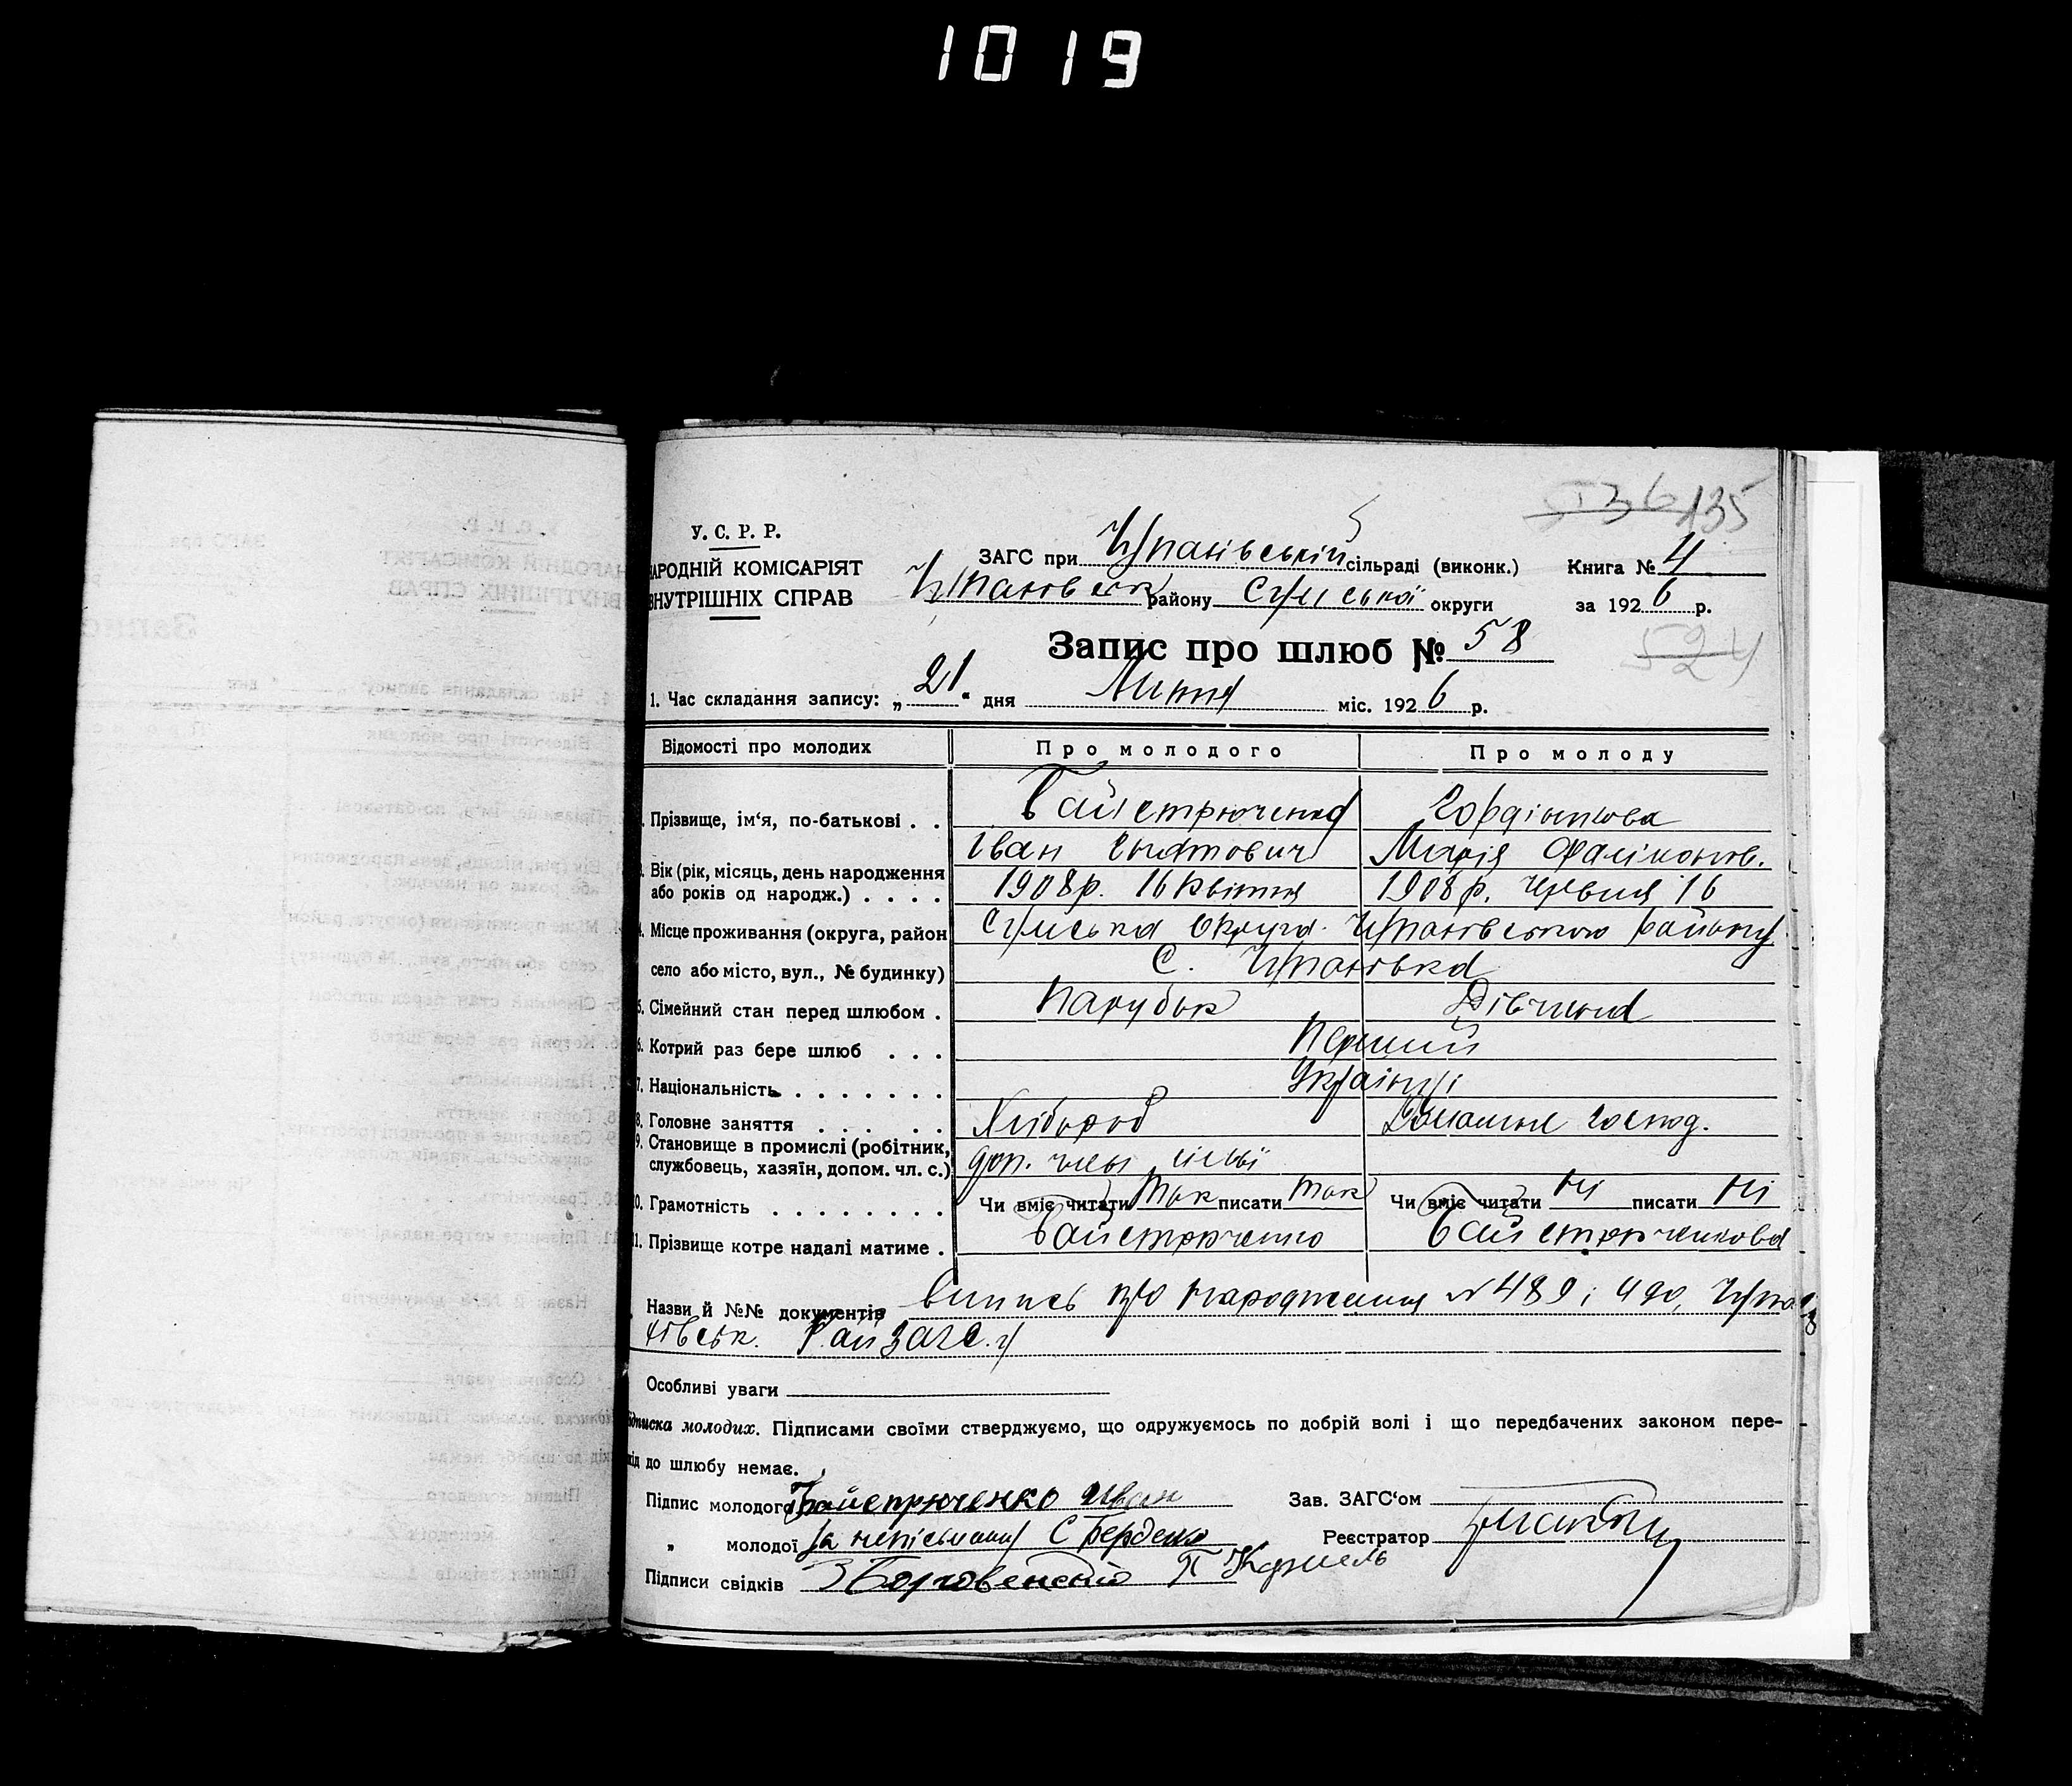 1019
536 135
У. С. Р. Р.
НАРОДНІЙ КОМІСАРІЯТ
ВНУТРІШНІХ СПРАВ
ЗАГС при Чупахівській сільраді (виконк.) Книга № 4
Чупаховськ району Сумської округи за 1926 р.
Запис про шлюб № 58
524
1. Час складання запису: „21“ дня Липня міс. 1926 р.
Відомості про молодих Про молодого Про молоду
Прізвище, ім‘я, по-батькові . . Байстрюченко
Іван Марія
Вік (рік, місяць, день народження 1908р. 16 Квітня 1908р. Червня 16
або років од народж.) . . . .
Місце проживання (округа, район Сумська Округа. Чупаховського району
село або місто, вул., № будинку) С. Чупаховка
5. Сімейний стан перед шлюбом . Парубок Дівчина
6. Котрий раз бере шлюб . . . Перший
7. Національність . . . . . . . Українці
8. Головне заняття . . . . . Хлібороб Домашнє господ.
9. Становище в промислі (робітник, доп. член сімьї
службовець, хазяїн, допом. чл. с.)
10. Грамотність . . . . . . . . Чи вміє читати так писати так Чи вміє читати ні писати ні
11. Прізвище котре надалі матиме . Байстрюченко Байстрюченкова
Назви й №№ документів Випись про народження №489 і 490, Чупа
хівськ. РайЗАГС.у
Особливі уваги
Підписка молодих. Підписами своїми стверджуємо, що одружуємось по добрій волі і що передбачених законом пере-
кід до шлюбу немає.
Підпис молодого Байстрюченко Иван Зав. ЗАГС‘ом
„ молодої За неписьменну С Бердено Реєстратор
Підписи свідків